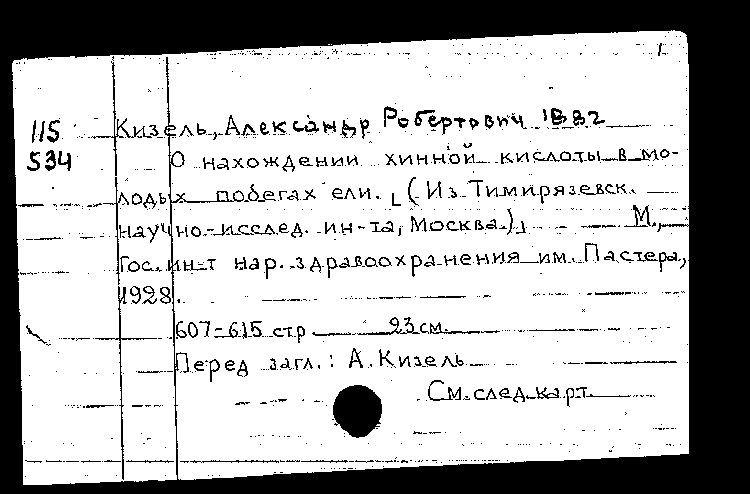 1
115 Кизель, Александр Робертович 1882
534 О нахождении хинной кислоты в мо-
лодых побегах ели. [(Из Тимирязевск.
научно-исслед. ин-та, Москва.), М.,
Гос. ин-т нар. здравоохранения им. Пастера,
1928.
607-615 стр. 23 см.
Перед загл.: А. Кизель
См. след. карт.